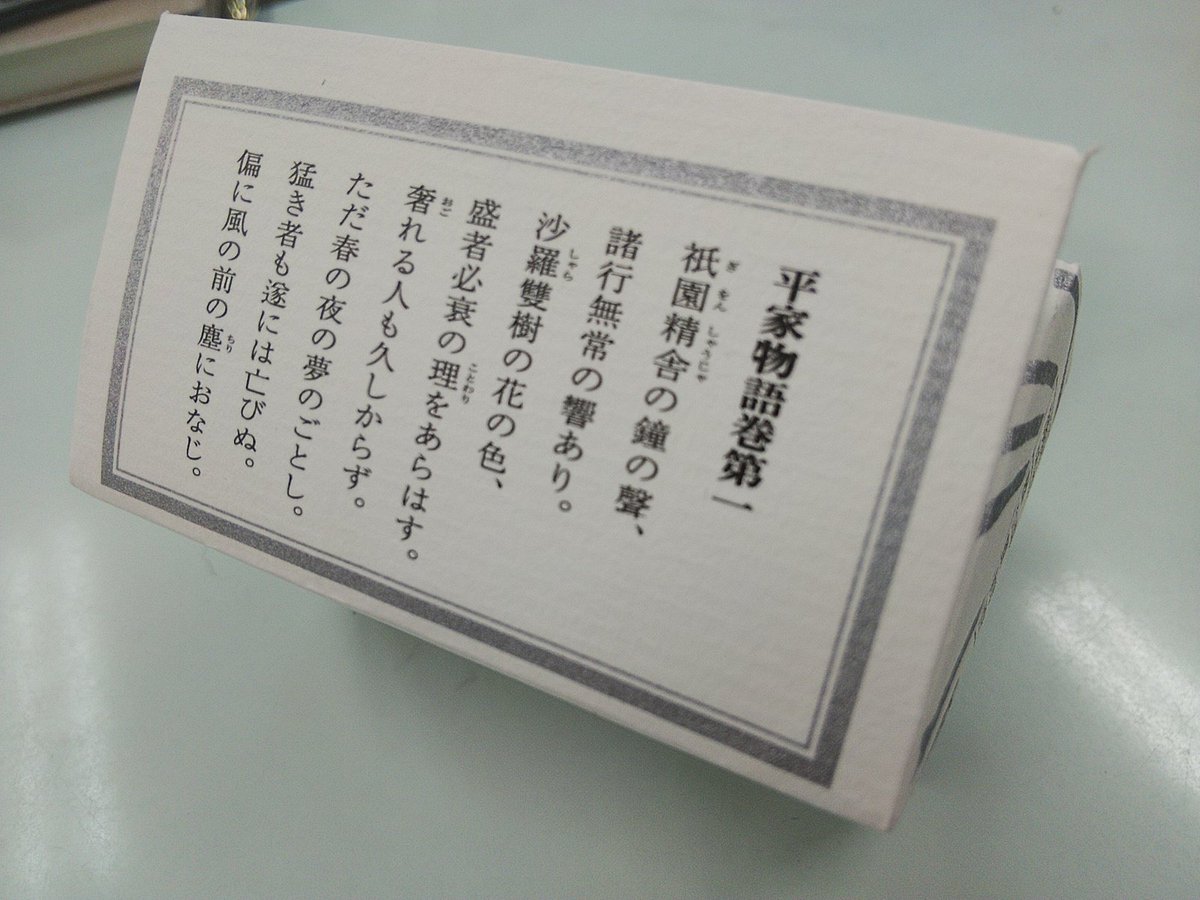 平家物語巻第一
祇園精舎の鐘の聲、
諸行無常の響あり。
沙羅雙樹の花の色、
盛者必衰の理をあらはす。
奢れる人も久しからず。
ただ春の夜の夢のごとし。
猛き者も遂には亡びぬ。
偏に風の前の塵におなじ。